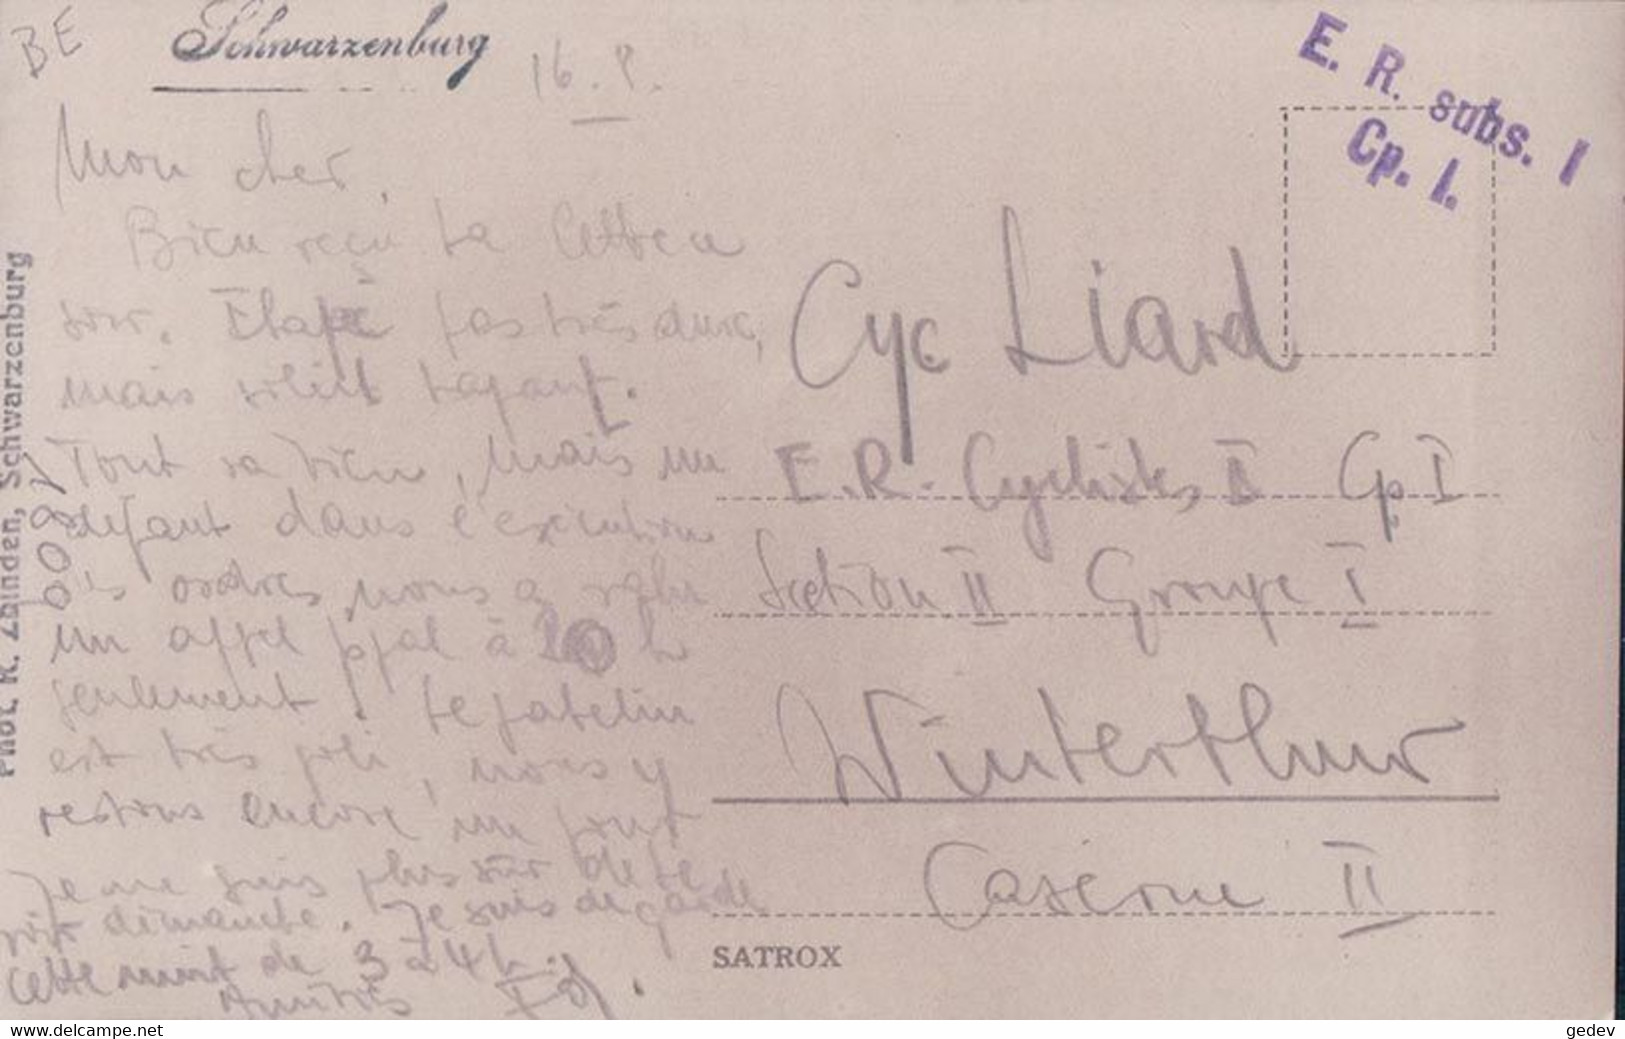 BE
Schwarzenburg
16. 8.
E. R. subs. I
Cp. I.
Mon cher,
Bien reçu ta lettre ce
soir. Etape pas très dure,
mais soleil tapant.
Tout va bien, mais un
défaut dans l'exécution
des ordres nous a valu
un appel ppal à 20 h
seulement! Le patelin
est très joli, nous y
restons encore un jour
Je ne suis plus sûr de te
voir dimanche. Je suis de garde
cette nuit de 3 à 4 h.
Amitiés
Cyc Liard
E.R. Cyclistes II Cp I
Section II Groupe I
Winterthur
Caserne II
SATROX
Phot. R. Zbinden, Schwarzenburg
www.delcampe.net
gedev